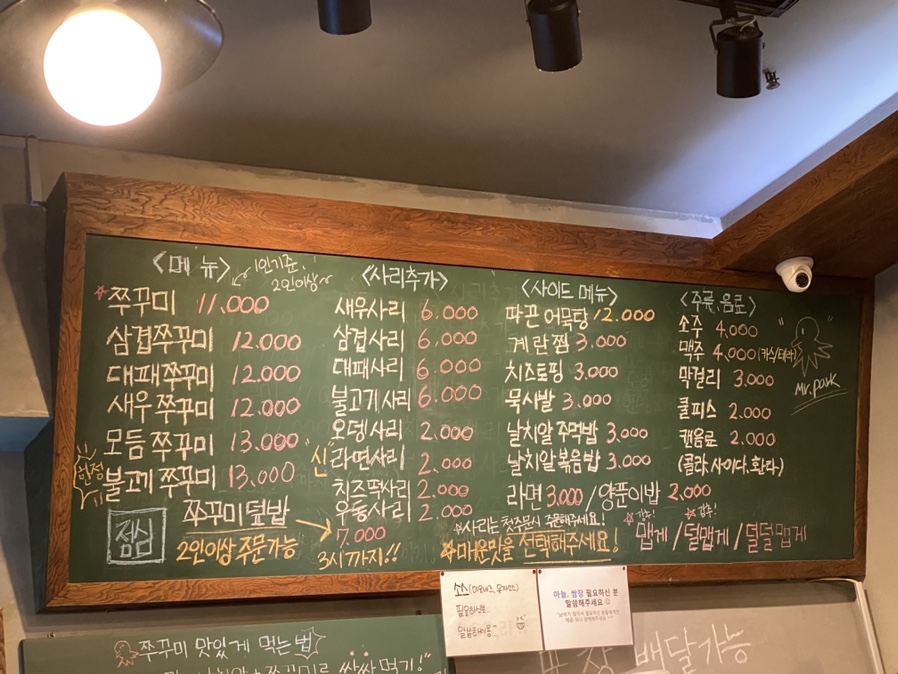 <메뉴>
1인기준.
2인이상~
쭈꾸미 11.000
삼겹쭈꾸미 12.000
대패쭈꾸미 12.000
새우쭈꾸미 12.000
모듬 쭈꾸미 13.000
한정
불고기 쭈꾸미 13.000
점심
쭈꾸미덮밥
2인이상 주문가능
7.000
3시까지!!
<사리추가>
새우사리 6.000
삼겹사리 6.000
대패사리 6.000
불고기사리 6.000
오뎅사리 2.000
신
라면사리 2.000
치즈떡사리 2.000
우동사리 2.000
<사이드 메뉴>
파끈 어묵탕 12.000
계란찜 3.000
치즈토핑 3.000
묵사발 3.000
날치알 주먹밥 3.000
날치알볶음밥 3.000
라면 3.000 / 양푼이밥 2.000
☆사리는 첫주문시 주문해주세요!
★매운맛을 선택해주세요!
<주류.음료>
소주 4,000
맥주 4,000 (카스/테라)
막걸리 3.000
쿨피스 2.000
캔음료 2.000
(콜라.사이다.환타)
Mr.park
맵게 / 덜맵게 / 덜덜맵게
소스
필요하신분..
마늘, 쌈장 필요하신 분
말씀해주세요
쭈꾸미 맛있게 먹는 법
배달가능